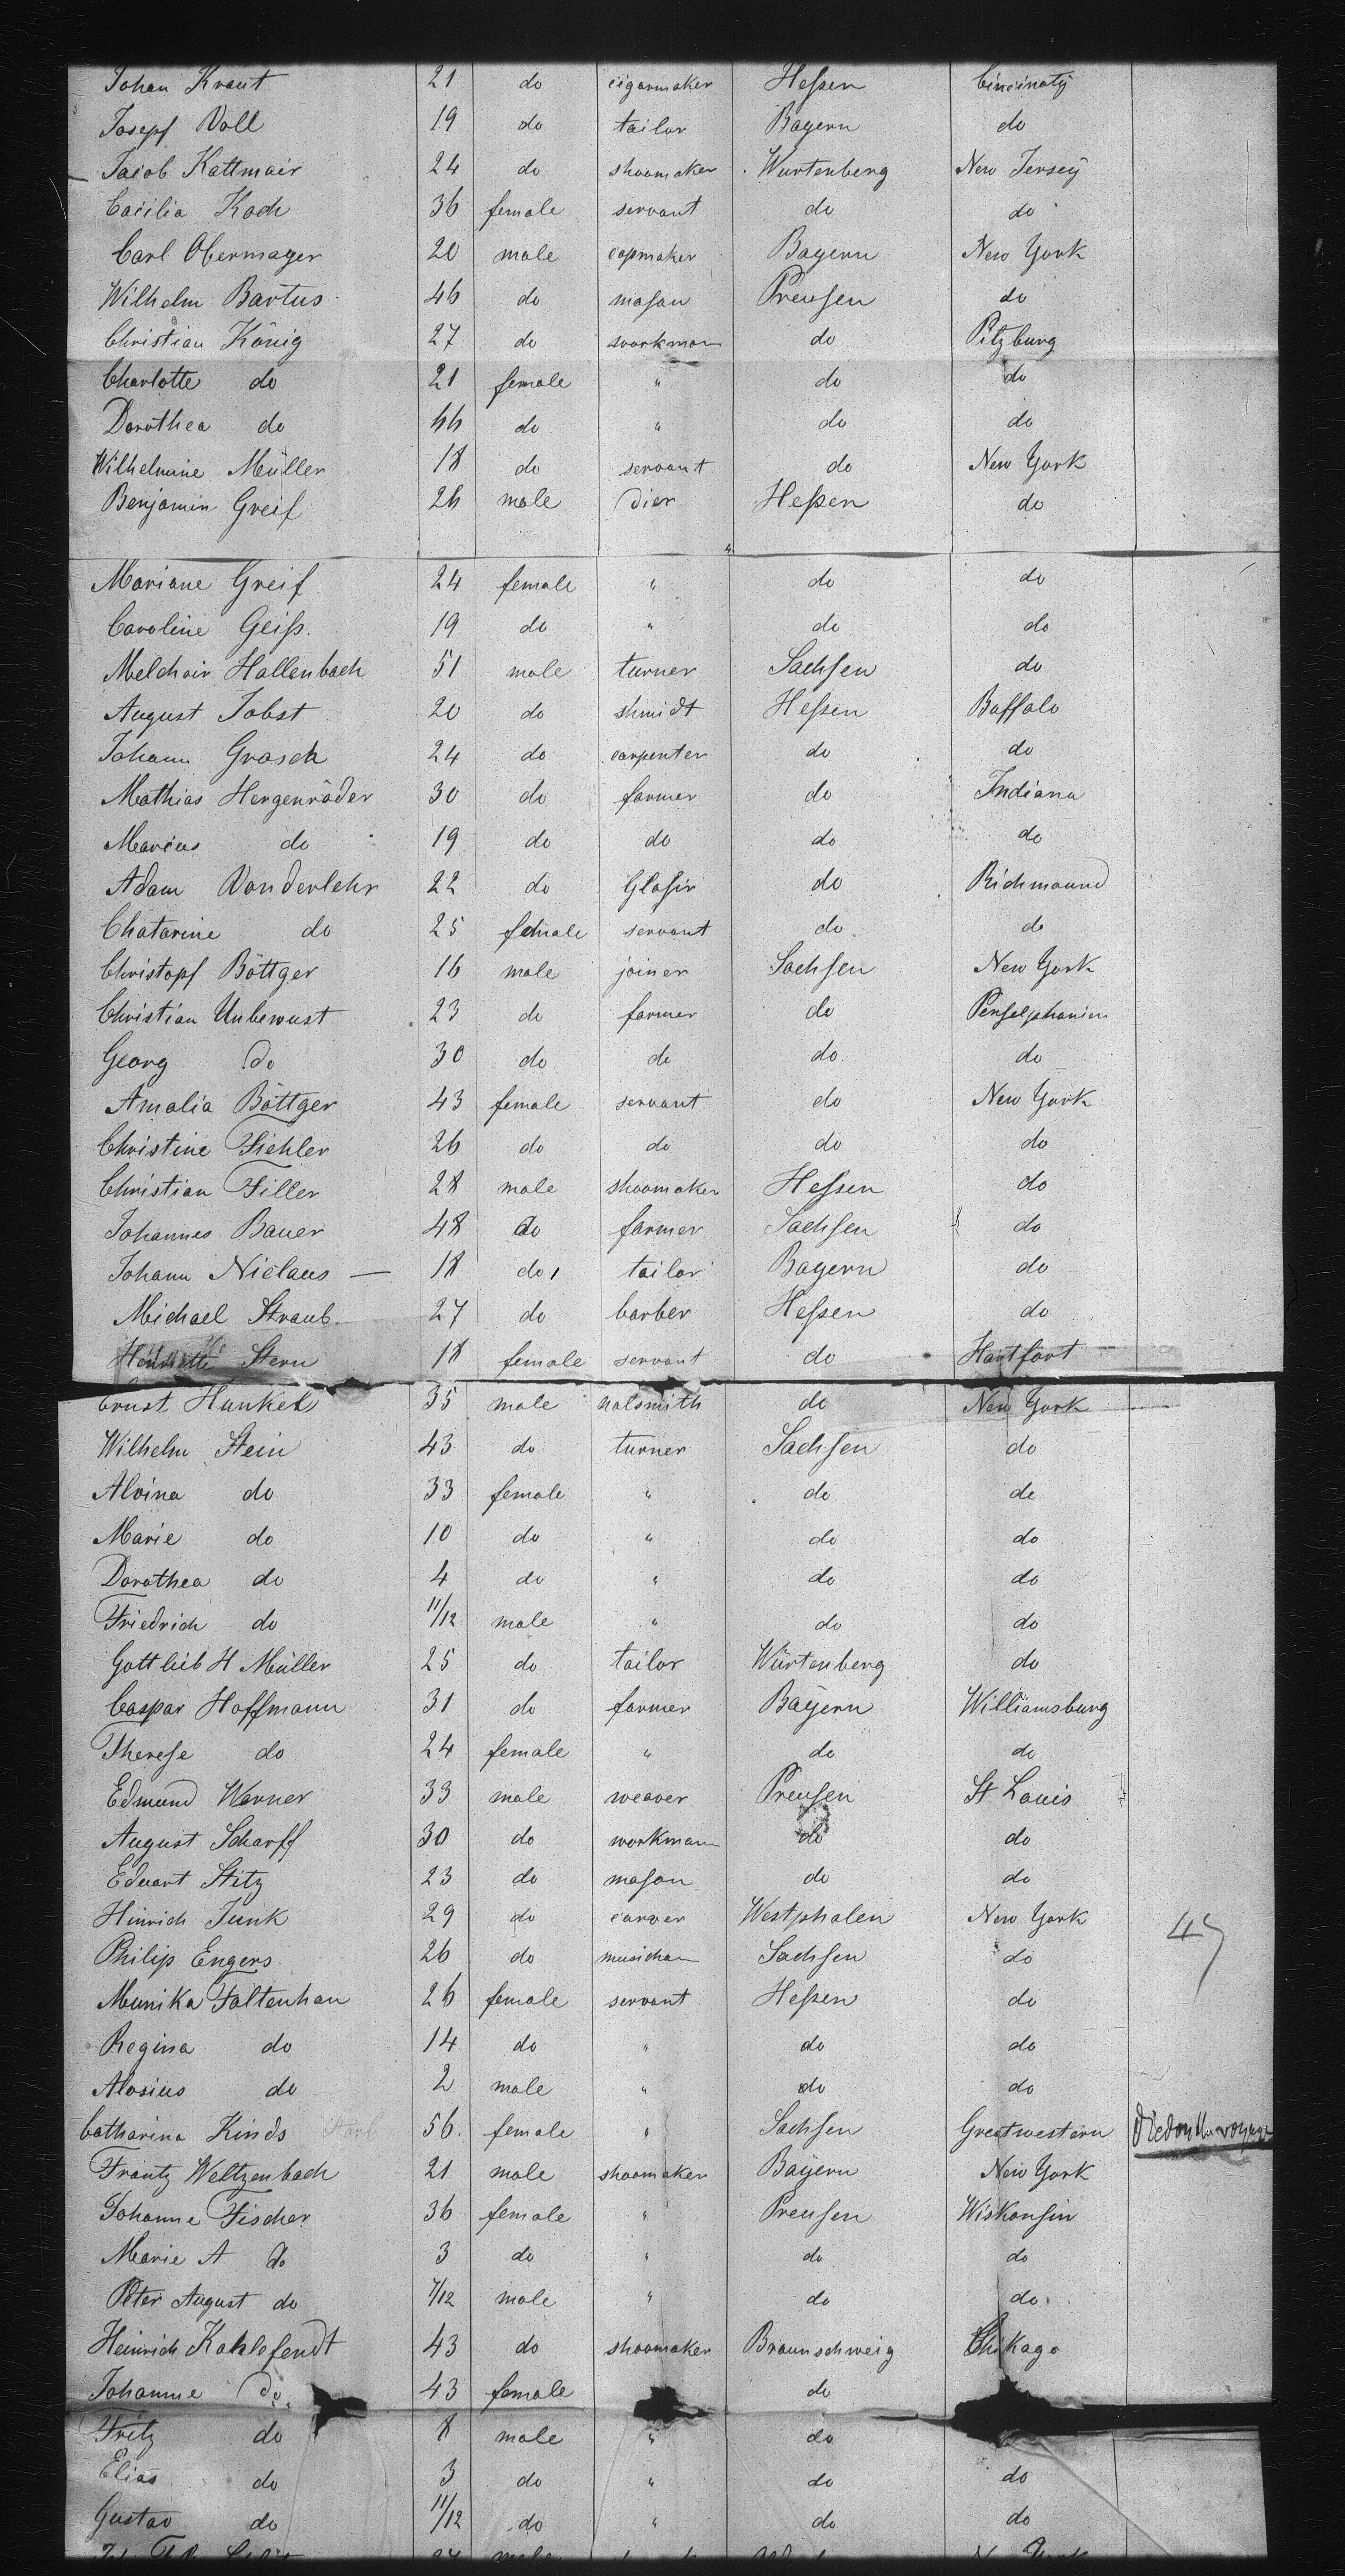 Johan Kraut 21 do cigarmaker Heßen Cincinaty
Josepf Voll 19 do tailor Bayern do
Jacob Kattmair 24 do shoomaker Wurtenberg New Jersey
Cäcilia Koch 36 female servant do do
Carl Obermayer 20 male capmaker Bayern New York
Wilhelm Bartus 46 do maſon Preuſen do
Christian König 27 do workman do Pitzburg
Charlotte do 21 female " do do
Dorothea do do " do do
Wilhelmine Müller 18 do servant do New York
Benjamin Greif 26 male dier Heßen do
Mariane Greif 24 female " do do
Caroline Geiß. 19 do " do do
Melchoir Hallenbach 51 male turner Sachſen do
August Jobst 20 do shmidt Heßen Buffalo
Johann Grosch 24 do carpenter do do
Mathias Hergenröder 30 do farmer do Indiana
Marcus do 19 do do do do
Adam Vonderlehr 22 do Glaſir do Richmound
Chatarine do 25 female servant do do
Christopf Böttger 16 male joiner Sachſen New York
Christian Unbewust 23 do farmer do
Georg do 30 do do do do
Amalia Böttger 43 female servant do New York
Christine Fiehler 26 do do do do
Christian Filler 28 male shoomaker Heßen do
Johannes Bauer 48 do farmer Sachſen do
Johann Niclaus — 18 do tailor Bayern do
Michael Straub 27 do barber Heßen do
Henriette Stern 18 female servant do Hartfort
Ernst Hunkel 35 male nalsmith do New York
Wilhelm Stein 43 do turner Sachſen do
Alvina do 33 female " do do
Marie do 10 do " do do
Dorothea do 4 do " do do
Friedrich do 11/12 male " do do
Gottlieb H Müller 25 do tailor Würtenberg do
Caspar Hoffmann 31 do farmer Bayern Williamsburg
Thereſe do 24 female " do do
Edmund Warner 33 male weaver Preuſen St Louis
August Scharff 30 do workman do do
Eduart Stitz 23 do maſon do do
Hinrich Junk 29 do carver Westphalen New York
Philip Engers 26 do musichan Sachſen do
49
Munika Faltenhan 26 female servant Heßen do
Regina do 14 do " do do
Alosius do 2 male " do do
Catharina Kinds 56. female " Sachſen Greatwestern Died on the voyage
Frantz Weltzenbach 21 male shoomaker Bayern New York
Johanne Fischer 36 female " Preuſen Wiskonſin
Marie A do 3 do " do do
Peter August do 7/12 male " do do
Heinrich Kahlefendt 43 do shoomaker Braunschweig Chikago
Johanne do 43 female do
Fritz do 8 male " do
Elias do 3 do " do do
Gustav do 11/12 do " do do